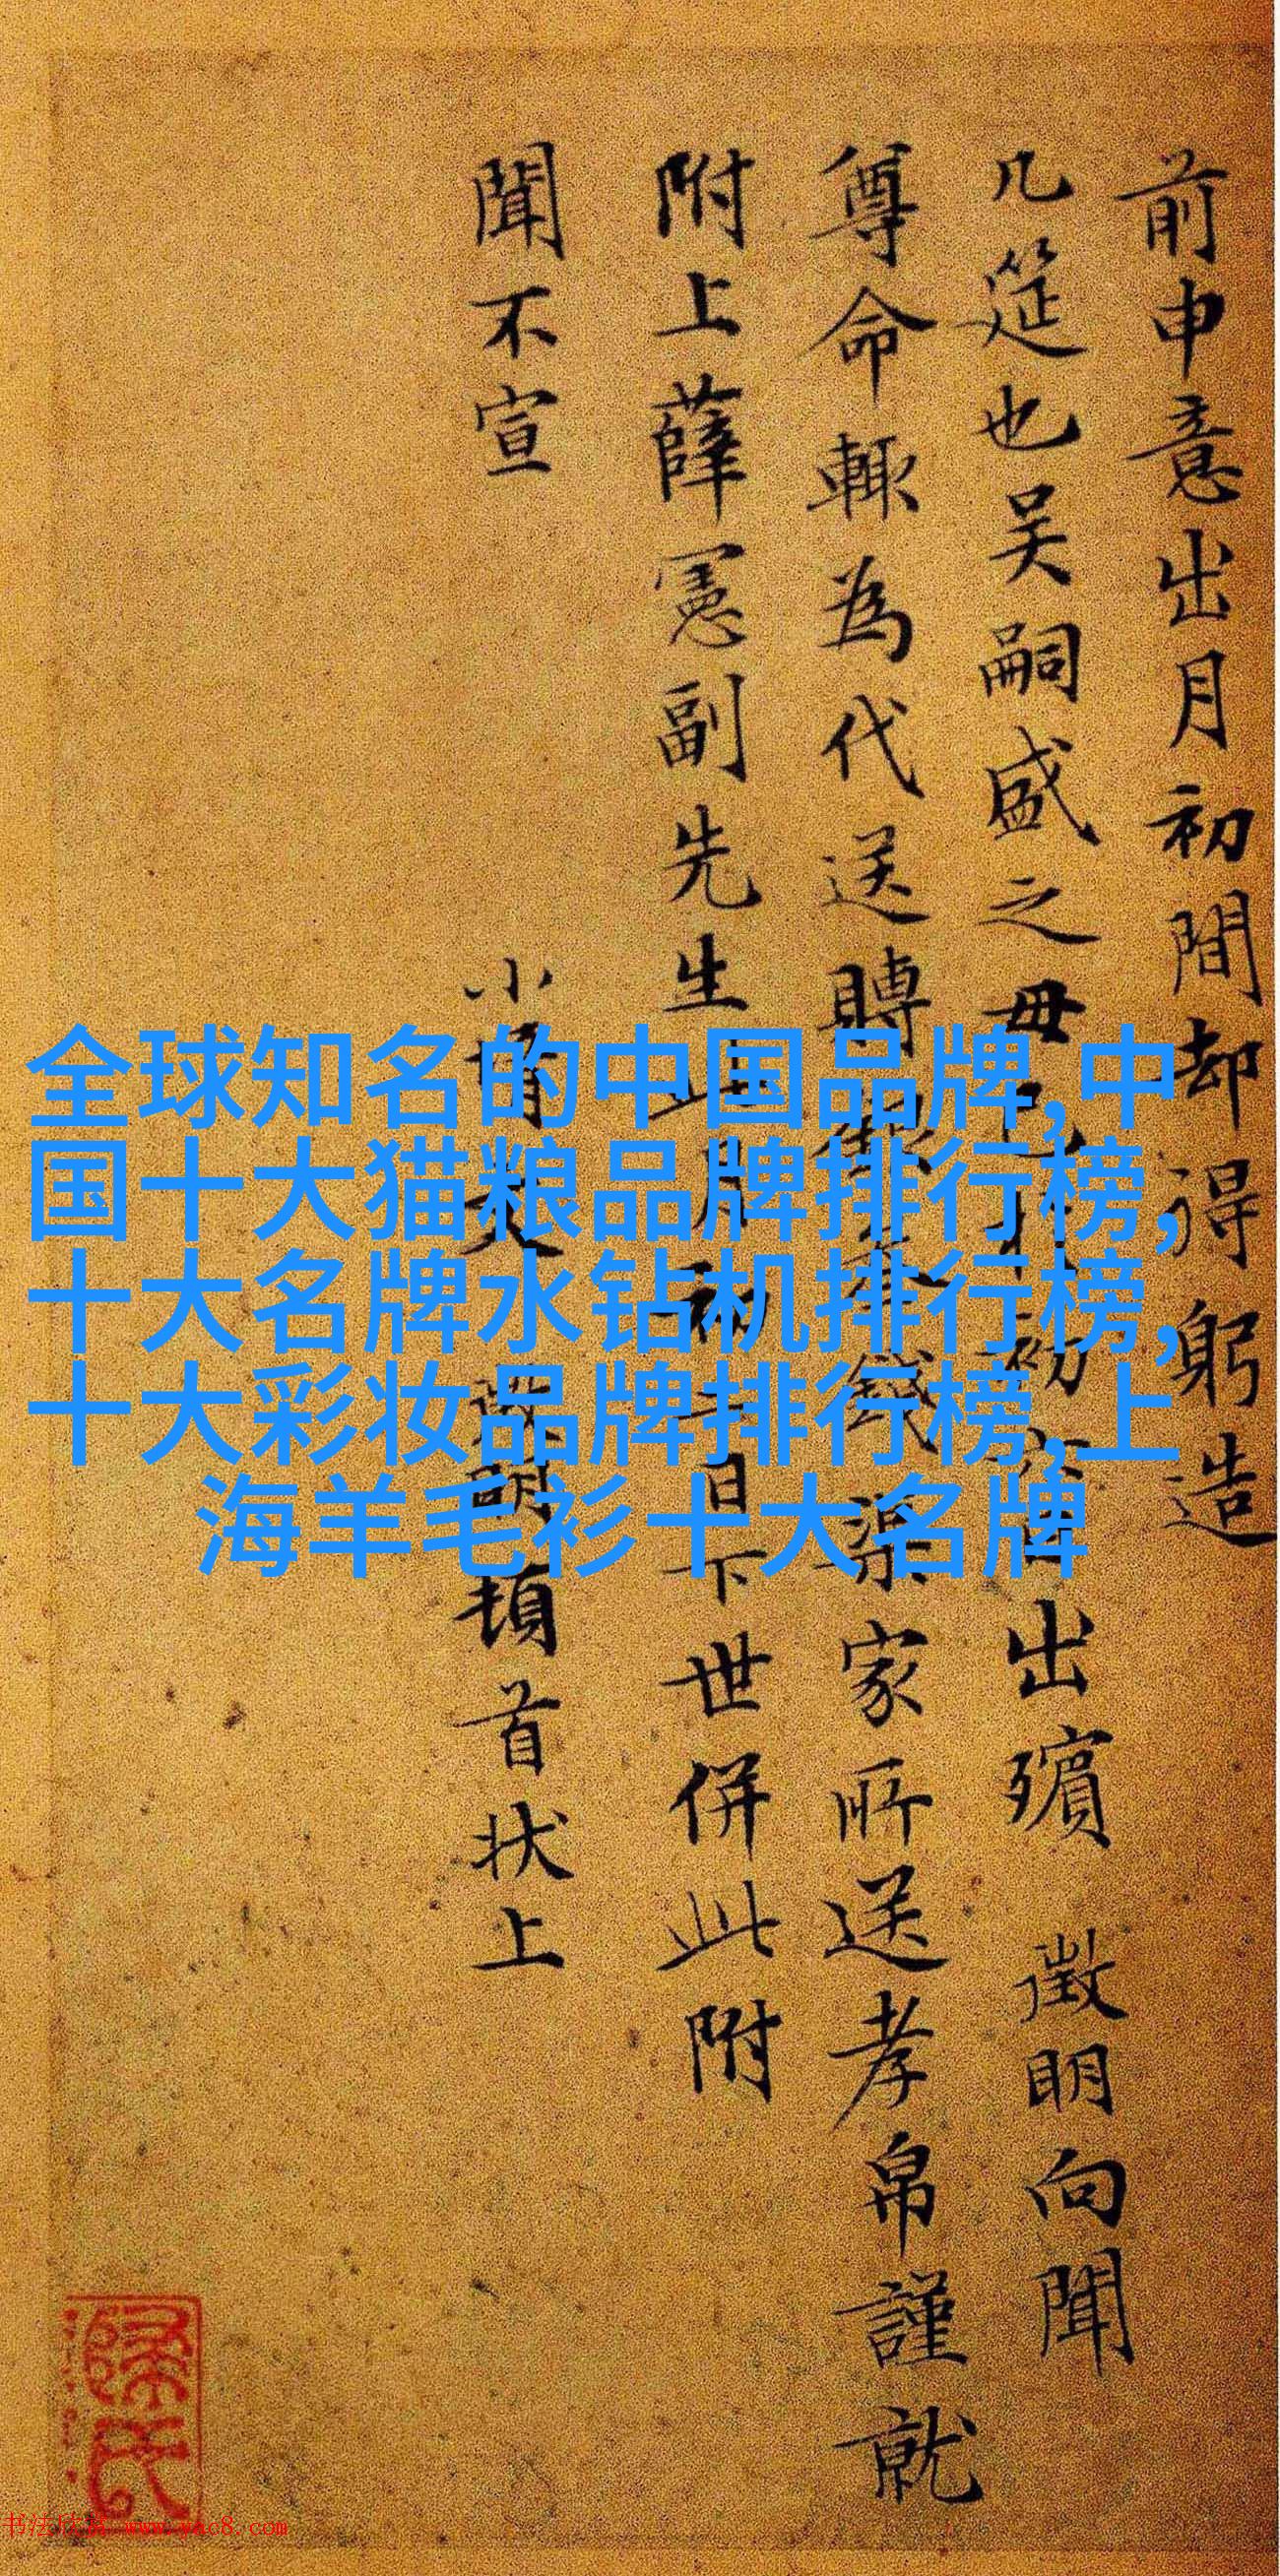 前申意出月初間却得躬造
几筵也吴嗣盛之毋已行初六日出殯 徵明向聞
尊命輙為代送賻銀叁錢渠家所送孝帛謹就
附上薛憲副先生止用初二日下世併此附
聞不宣
小壻文徵明頓首狀上
全球知名的中国品牌,中
国十大猫粮品牌排行榜,
十大名牌水钻机排行榜,
十大彩妆品牌排行榜,上
海羊毛衫十大名牌
书法欣赏 www.yac8.com